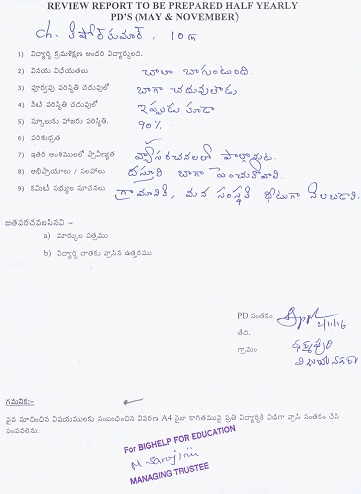 REVIEW REPORT TO BE PREPARED HALF YEARLY
PD'S (MAY & NOVEMBER)
Ch. కిషోర్ కుమార్, 10th
1) విద్యార్థి క్రమశిక్షణ అందరి విద్యార్థులది.
2) వినయ విధేయతలు చాలా బాగుంటుంది.
3) పూర్వపు పరిస్థితి చదువులో బాగా చదువుతాడు
4) నేటి పరిస్థితి చదువులో ఇప్పుడు కూడా
5) స్కూలుకు హాజరు పరిస్థితి. 90%
6) పరిశుభ్రత
7) ఇతర అంశములలో ప్రావీణ్యత వ్యాసరచనలలో పాల్గొనుట.
8) అభిప్రాయాలు / సలహాలు దస్తూరి బాగా పెంచుకోవాలి.
9) కమిటీ సభ్యుల సూచనలు గ్రామానికి, మన సంస్థకి ధీటుగా నిలబడాలి.
జతపరచవలసినవి -
a) మార్కుల పత్రము
b) విద్యార్థి దాతకు వ్రాసిన ఉత్తరము
PD సంతకం 2/11/16
తేది.
గ్రామం ధర్మపురి
విజయనగరం
గమనిక:-
పైన సూచించిన విషయములకు సంబంధించిన వివరణ A4 సైజు కాగితముపై ప్రతి విద్యార్థికి విడిగా వ్రాసి సంతకం చేసి
పంపవలెను.
For BIGHELP FOR EDUCATION
M Sarojini
MANAGING TRUSTEE